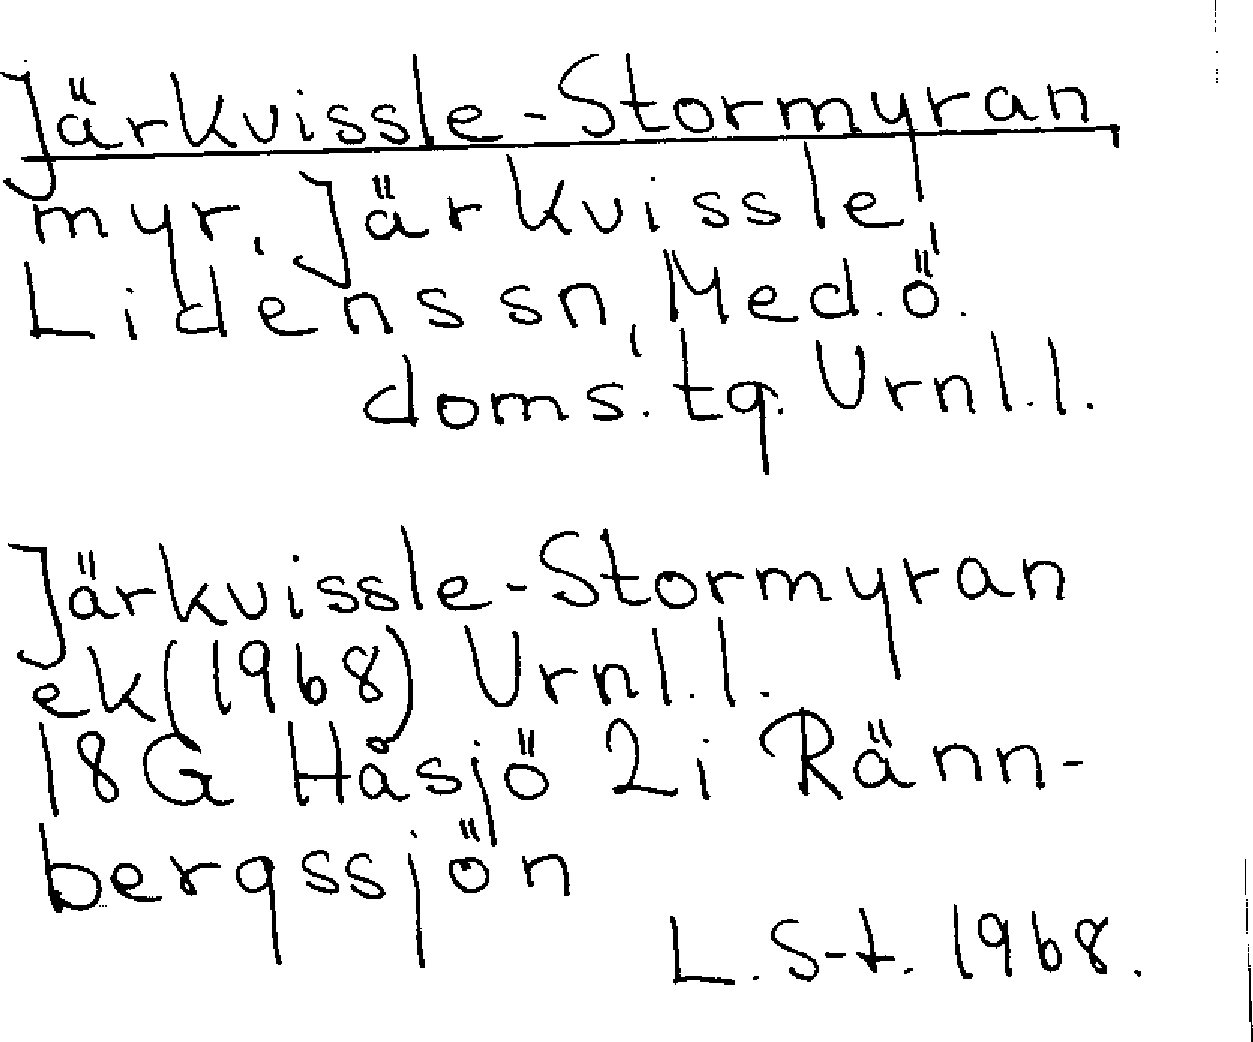 Järkvissle-Stormyran
myr, Järkvissle,
Lidens sn, Med.ö.
doms. tg. Vrnl.l.
Järkvissle-Stormyran
ek (1968) Vrnl.l.
18G Håsjö 2i Ränn-
bergssjön
L. S-t. 1968.